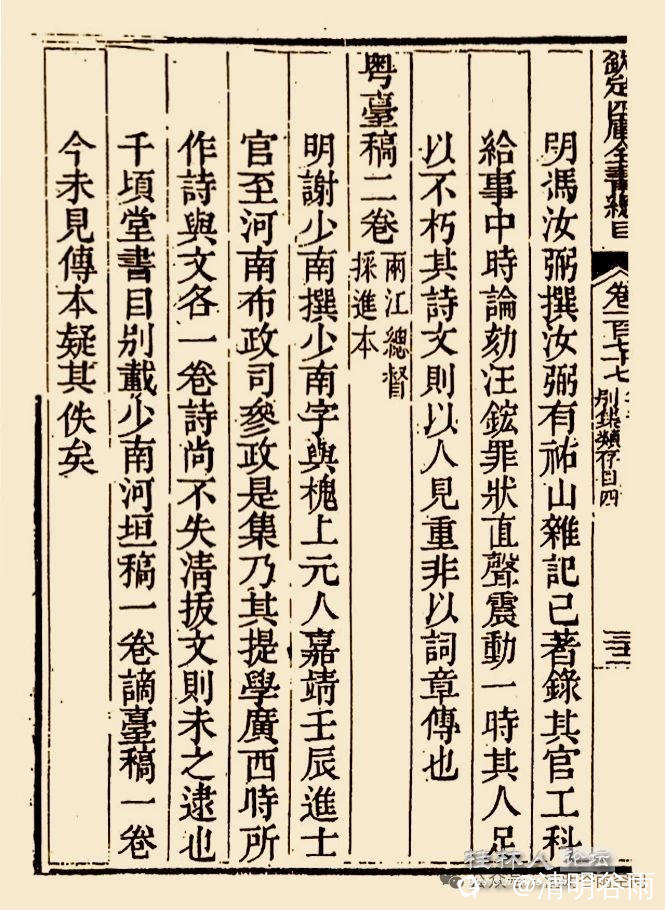 欽定四庫全書總目
卷一百七十七
別集類存目四
明馮汝弼撰汝弼有祐山雜記已著錄其官工科
給事中時論劾汪鋐罪狀直聲震動一時其人足
以不朽其詩文則以人見重非以詞章傳也
粤臺稿二卷
兩江總督
採進本
明謝少南撰少南字與槐上元人嘉靖壬辰進士
官至河南布政司參政是集乃其提學廣西時所
作詩與文各一卷詩尚不失淸拔文則未之逮也
千頃堂書目別載少南河垣稿一卷謫臺稿一卷
今未見傳本疑其佚矣
桂林人论坛
@清明谷雨